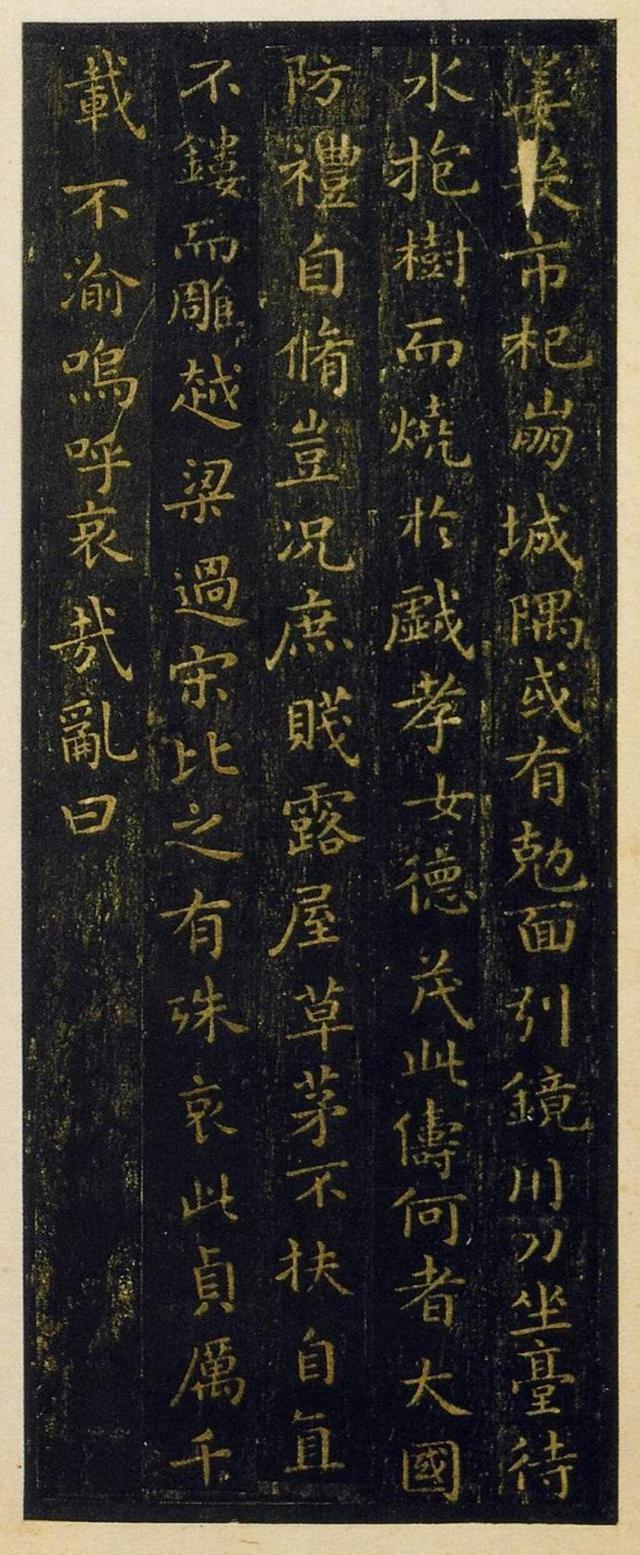 姜市杞崩城隅或有勊面引鏡川刀坐臺待
水抱樹而燒於戯孝女德茂此儔何者大國
防禮自脩豈況庶賤露屋草茅不扶自直
不鏤而雕越梁過宋比之有殊哀此貞厲千
載不渝嗚呼哀哉亂曰